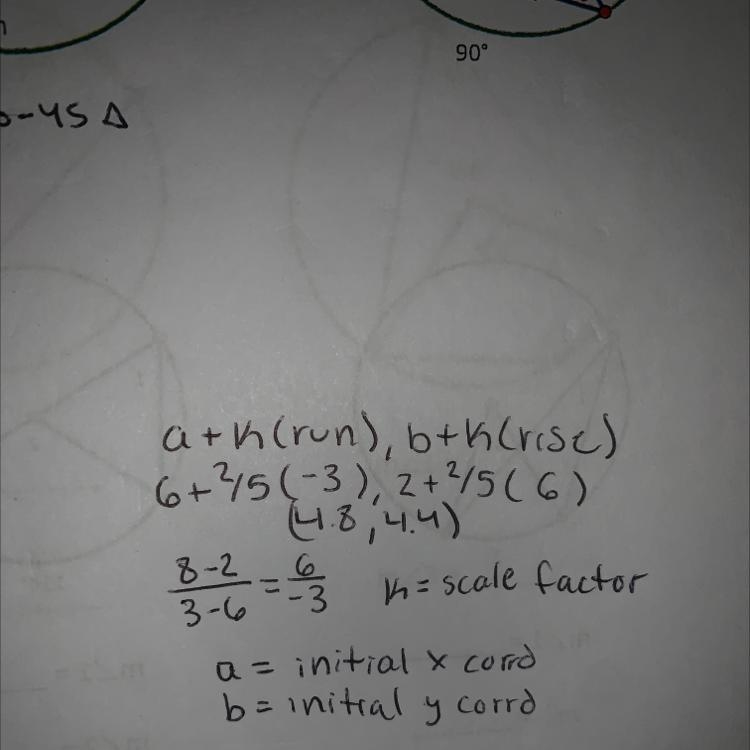 90°
-45 Δ
a + k(run), b+k(rise)
6+2/5(-3), 2+2/5(6)
(4.8, 4.4)
8-2/3-6 = 6/-3 k = scale factor
a = initial x corrd
b = initial y corrd